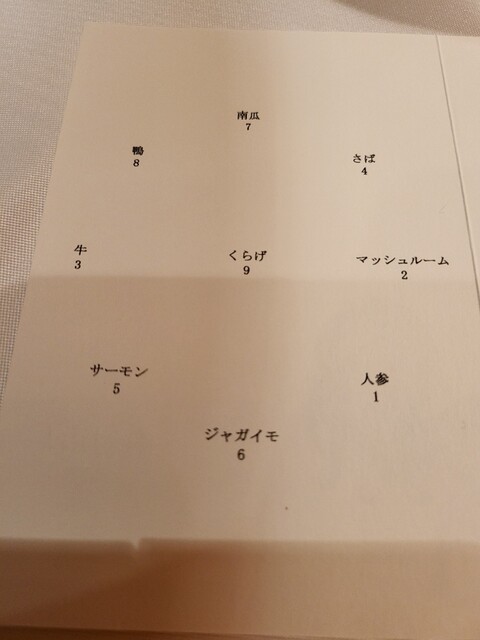 南瓜
7
鴨
8
さば
4
牛
3
くらげ
9
マッシュルーム
2
サーモン
5
人参
1
ジャガイモ
6